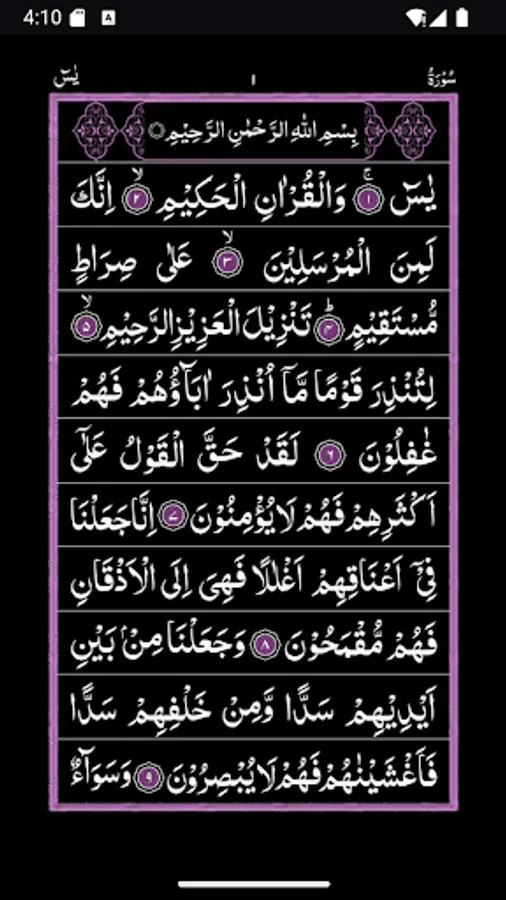 4:10 A
سُوْرَةُ ١ يٰسٓ
بِسْمِ اللّٰهِ الرَّحْمٰنِ الرَّحِيْمِ
يٰسٓ ۚ ﴿١﴾ وَالْقُرْاٰنِ الْحَكِيْمِ ۙ ﴿٢﴾ اِنَّكَ
لَمِنَ الْمُرْسَلِيْنَ ۙ ﴿٣﴾ عَلٰى صِرَاطٍ
مُّسْتَقِيْمٍ ؕ ﴿٤﴾ تَنْزِيْلَ الْعَزِيْزِ الرَّحِيْمِ ۙ ﴿٥﴾
لِتُنْذِرَ قَوْمًا مَّاۤ اُنْذِرَ اٰبَآؤُهُمْ فَهُمْ
غٰفِلُوْنَ ﴿٦﴾ لَقَدْ حَقَّ الْقَوْلُ عَلٰٓى
اَكْثَرِهِمْ فَهُمْ لَا يُؤْمِنُوْنَ ﴿٧﴾ اِنَّا جَعَلْنَا
فِىْۤ اَعْنَاقِهِمْ اَغْلٰلًا فَهِىَ اِلَى الْاَذْقَانِ
فَهُمْ مُّقْمَحُوْنَ ﴿٨﴾ وَجَعَلْنَا مِنْۢ بَيْنِ
اَيْدِيْهِمْ سَدًّا وَّمِنْ خَلْفِهِمْ سَدًّا
فَاَغْشَيْنٰهُمْ فَهُمْ لَا يُبْصِرُوْنَ ﴿٩﴾ وَسَوَآءٌ